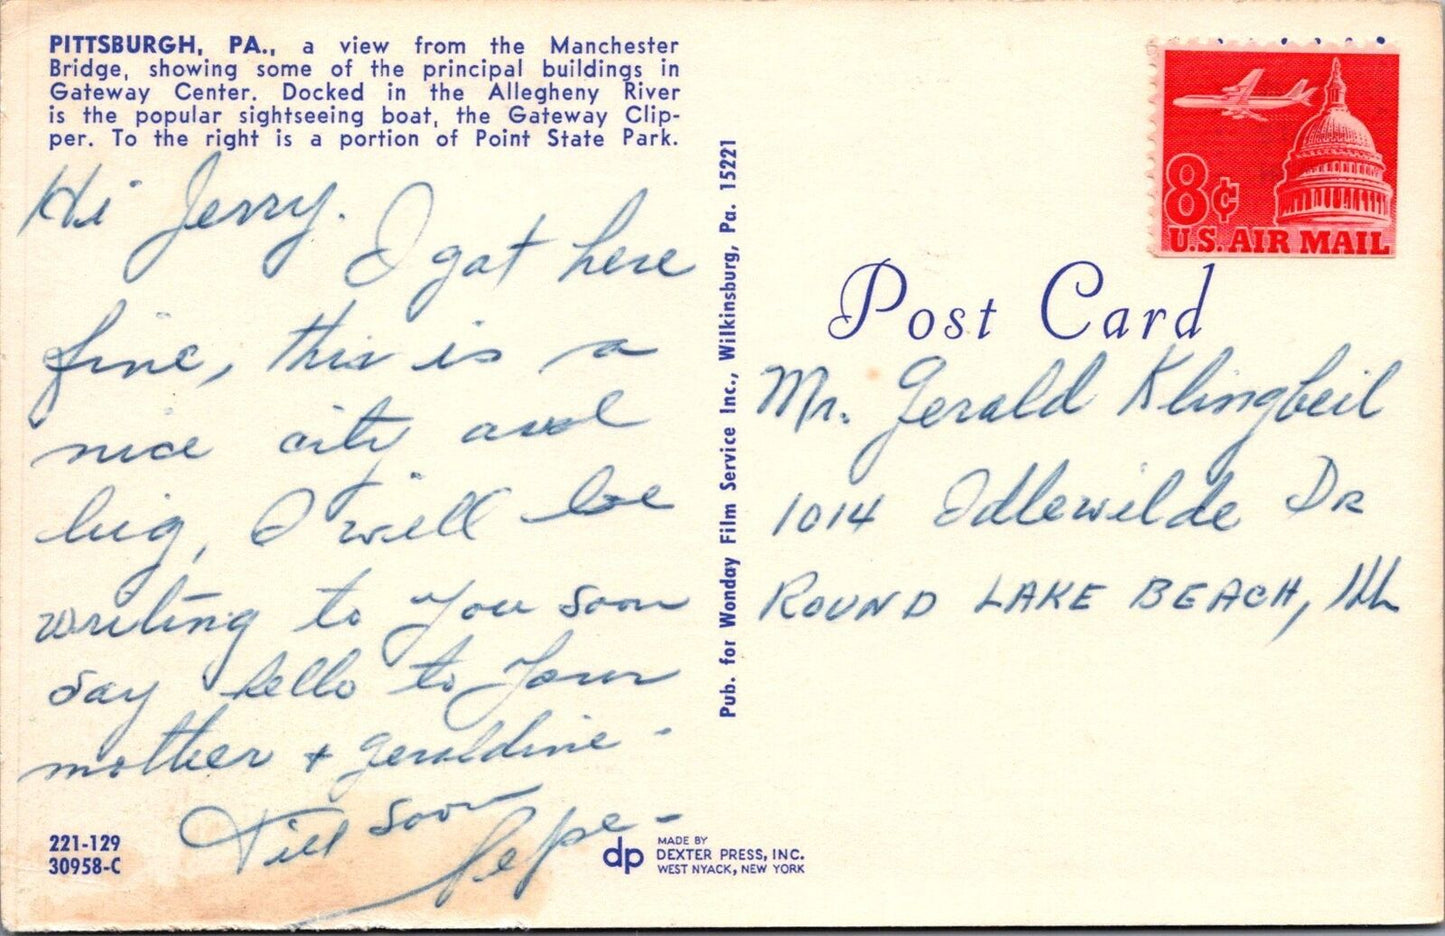 PITTSBURGH, PA., a view from the Manchester
Bridge, showing some of the principal buildings in
Gateway Center. Docked in the Allegheny River
is the popular sightseeing boat, the Gateway Clip-
per. To the right is a portion of Point State Park.
Hi Jerry. I got here
fine, this is a
nice city and
big, I will be
writing to you soon
say hello to your
mother + Geraldine -
Till soon
Pepe -
221-129
30958-C
dp
MADE BY
DEXTER PRESS, INC.
WEST NYACK, NEW YORK
Pub. for Wonday Film Service Inc., Wilkinsburg, Pa. 15221
8¢
U.S. AIR MAIL
Post Card
Mr. Gerald Klingbeil
1014 Idlewilde Dr
ROUND LAKE BEACH, Ill